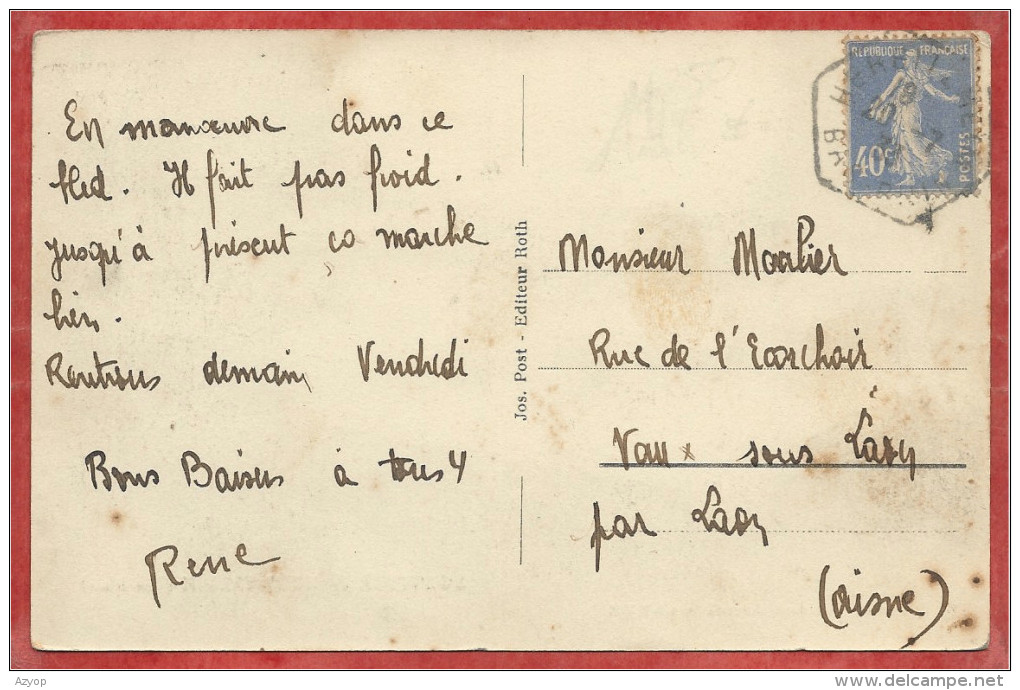 En manœuvre dans ce
bled. Il fait pas froid.
jusqu'à présent ça marche
bien.
Rentrons demain Vendredi
Bons Baisers à tous 4
Rene
Jos. Post - Editeur Roth
REPUBLIQUE FRANÇAISE
40c
POSTES
Monsieur
Rue de l'Ecorchoir
Vaux sous Laon
par Laon
(Aisne)
Azyop
delcampe.net